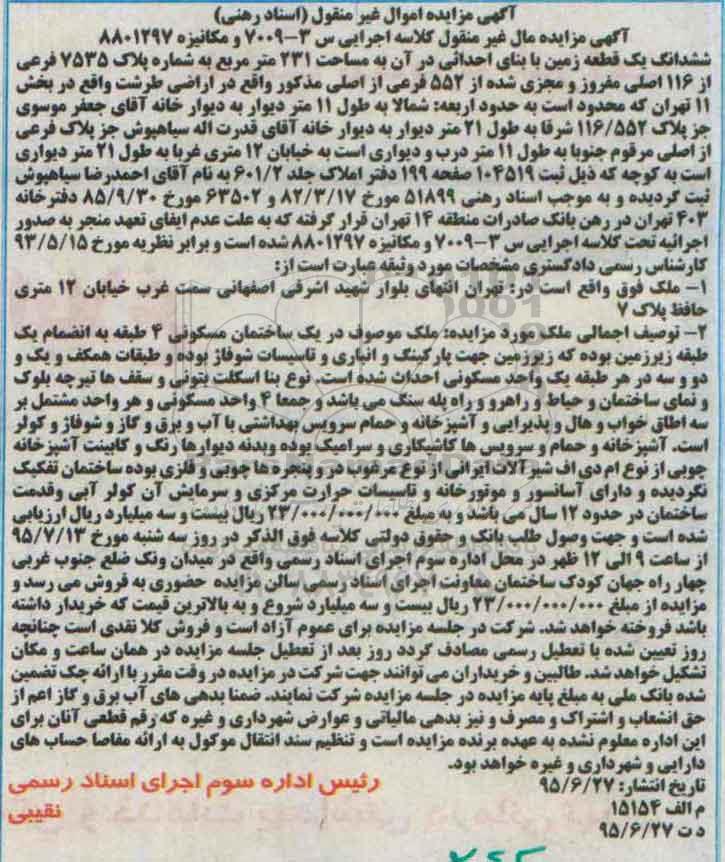 آگهی مزایده اموال غیر منقول (اسناد رهنی)
آگهی مزایده مال غیر منقول کلاسه اجرایی س ۳-۷۰۰۹ و مکانیزه ۸۸۰۱۲۹۷
ششدانگ یک قطعه زمین با بنای احداثی در آن به مساحت ۲۳۱ متر مربع به شماره پلاک ۷۵۳۵ فرعی
از ۱۱۶ اصلی مفروز و مجزی شده از ۵۵۲ فرعی از اصلی مذکور واقع در اراضی طرشت واقع در بخش
۱۱ تهران که محدود است به حدود اربعه: شمالا به طول ۱۱ متر دیوار به دیوار خانه آقای جعفر موسوی
جز پلاک ۱۱۶/۵۵۲ شرقا به طول ۲۱ متر دیوار به دیوار خانه آقای قدرت اله سیاهپوش جز پلاک فرعی
از اصلی مرقوم جنوبا به طول ۱۱ متر درب و دیواری است به خیابان ۱۲ متری غربا به طول ۲۱ متر دیواری
است به کوچه که ذیل ثبت ۱۰۴۵۱۹ صفحه ۱۹۹ دفتر املاک جلد ۶۰۱/۲ به نام آقای احمدرضا سیاهپوش
ثبت گردیده و به موجب اسناد رهنی ۵۱۸۹۹ مورخ ۸۲/۳/۱۷ و ۶۳۵۰۲ مورخ ۸۵/۹/۳۰ دفترخانه
۴۰۳ تهران در رهن بانک صادرات منطقه ۱۴ تهران قرار گرفته که به علت عدم ایفای تعهد منجر به صدور
اجرائیه تحت کلاسه اجرایی س ۳-۷۰۰۹ و مکانیزه ۸۸۰۱۲۹۷ شده است و برابر نظریه مورخ ۹۳/۵/۱۵
کارشناس رسمی دادگستری مشخصات مورد وثیقه عبارت است از:
۱- ملک فوق واقع است در: تهران انتهای بلوار شهید اشرفی اصفهانی سمت غرب خیابان ۱۲ متری
حافظ پلاک ۷
۲- توصیف اجمالی ملک مورد مزایده: ملک موصوف در یک ساختمان مسکونی ۴ طبقه به انضمام یک
طبقه زیرزمین بوده که زیرزمین جهت پارکینگ و انباری و تاسیسات شوفاژ بوده و طبقات همکف و یک و
دو و سه در هر طبقه یک واحد مسکونی احداث شده است. نوع بنا اسکلت بتونی و سقف ها تیرچه بلوک
و نمای ساختمان و حیاط و راهرو و راه پله سنگ می باشد و جمعا ۴ واحد مسکونی و هر واحد مشتمل بر
سه اطاق خواب و هال و پذیرایی و آشپزخانه و حمام سرویس بهداشتی با آب و برق و گاز و شوفاژ و کولر
است. آشپزخانه و حمام و سرویس ها کاشیکاری و سرامیک بوده وبدنه دیوارها رنگ و کابینت آشپزخانه
چوبی از نوع ام دی اف شیرآلات ایرانی از نوع مرغوب در و پنجره ها چوبی و فلزی بوده ساختمان تفکیک
نگردیده و دارای آسانسور و موتورخانه و تاسیسات حرارت مرکزی و سرمایش آن کولر آبی وقدمت
ساختمان در حدود ۱۲ سال می باشد و به مبلغ ۲۳/۰۰۰/۰۰۰/۰۰۰ ریال بیست و سه میلیارد ریال ارزیابی
شده است و جهت وصول طلب بانک و حقوق دولتی کلاسه فوق الذکر در روز سه شنبه مورخ ۹۵/۷/۱۳
از ساعت ۹ الی ۱۲ ظهر در محل اداره سوم اجرای اسناد رسمی واقع در میدان ونک ضلع جنوب غربی
چهار راه جهان کودک ساختمان معاونت اجرای اسناد رسمی سالن مزایده حضوری به فروش می رسد و
مزایده از مبلغ ۲۳/۰۰۰/۰۰۰/۰۰۰ ریال بیست و سه میلیارد شروع و به بالاترین قیمت که خریدار داشته
باشد فروخته خواهد شد. شرکت در جلسه مزایده برای عموم آزاد است و فروش کلا نقدی است چنانچه
روز تعیین شده با تعطیل رسمی مصادف گردد روز بعد از تعطیل جلسه مزایده در همان ساعت و مکان
تشکیل خواهد شد. طالبین و خریداران می توانند جهت شرکت در مزایده در وقت مقرر با ارائه چک تضمین
شده بانک ملی به مبلغ پایه مزایده در جلسه مزایده شرکت نمایند. ضمنا بدهی های آب برق و گاز اعم از
حق انشعاب و اشتراک و مصرف و نیز بدهی مالیاتی و عوارض شهرداری و غیره که رقم قطعی آنان برای
این اداره معلوم نشده به عهده برنده مزایده است و تنظیم سند انتقال موکول به ارائه مفاصا حساب های
دارایی و شهرداری و غیره خواهد بود.
رئیس اداره سوم اجرای اسناد رسمی
تاریخ انتشار: ۹۵/۶/۲۷
نقیبی
م الف ۱۵۱۵۴
د ت ۹۵/۶/۲۷